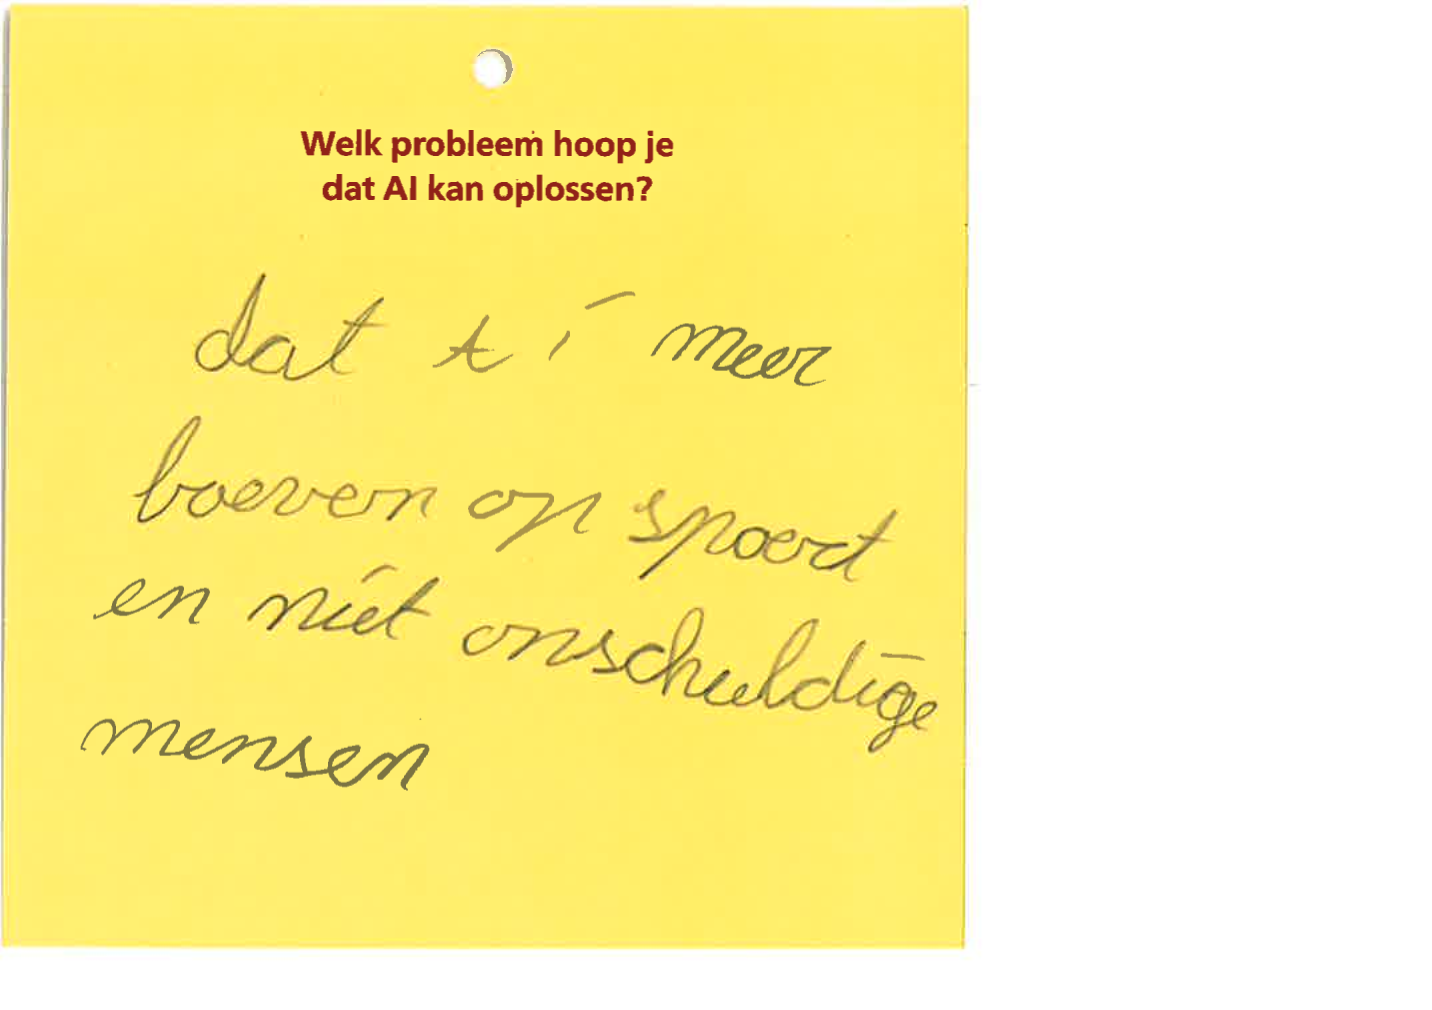 Welk probleem hoop je
dat AI kan oplossen?
dat i meer
boeven op spoort
en niet onschuldige
mensen